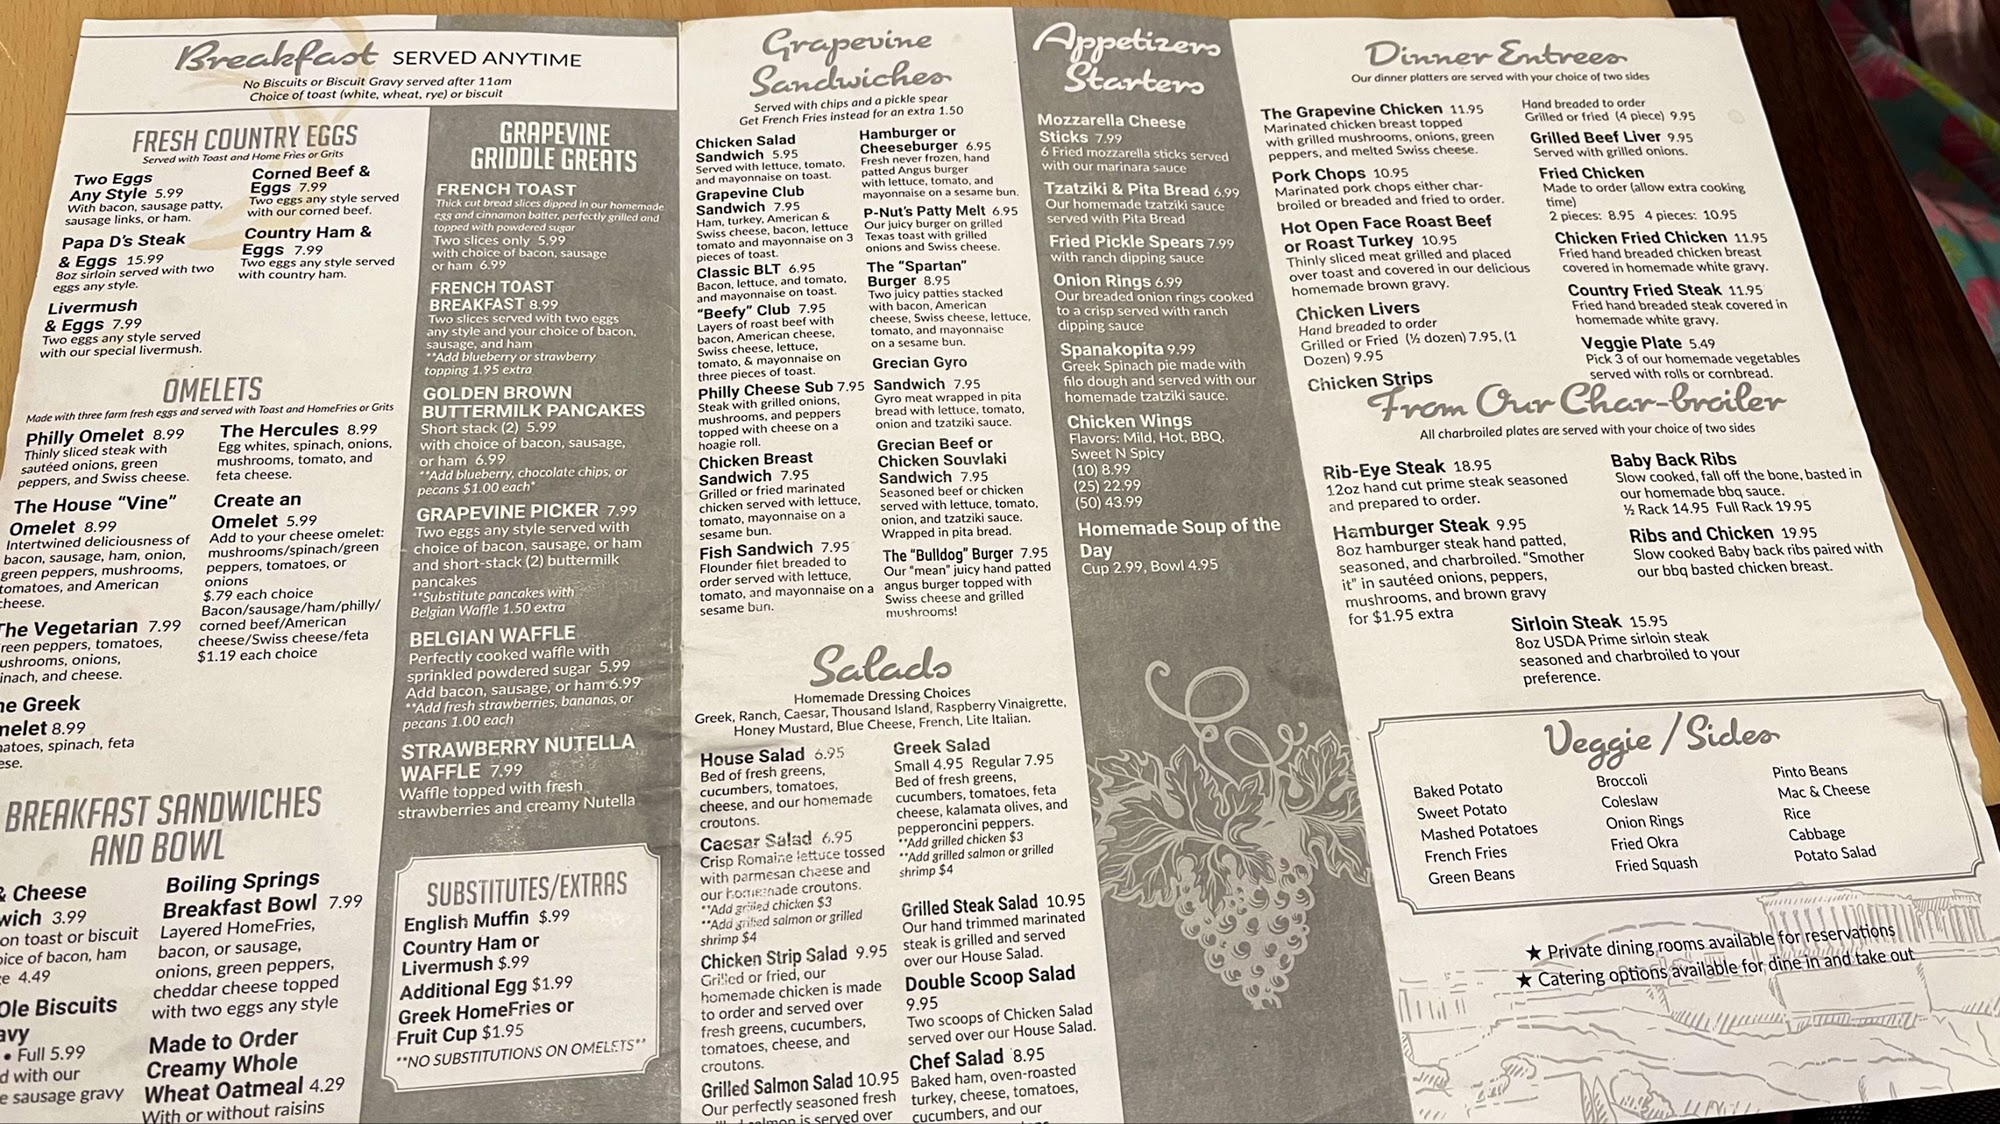 Breakfast SERVED ANYTIME
No Biscuits or Biscuit Gravy served after 11am
Choice of toast (white, wheat, rye) or biscuit
FRESH COUNTRY EGGS
Served with Toast and Home Fries or Grits
Two Eggs
Any Style 5.99
With bacon, sausage patty,
sausage links, or ham.
Papa D's Steak
& Eggs 15.99
8oz sirloin served with two
eggs any style.
Livermush
& Eggs 7.99
Two eggs any style served
with our special livermush.
Corned Beef &
Eggs 7.99
Two eggs any style served
with our corned beef.
Country Ham &
Eggs 7.99
Two eggs any style served
with country ham.
OMELETS
Made with three farm fresh eggs and served with Toast and HomeFries or Grits
Philly Omelet 8.99
Thinly sliced steak with
sautéed onions, green
peppers, and Swiss cheese.
The House "Vine"
Omelet 8.99
Intertwined deliciousness of
bacon, sausage, ham, onion,
green peppers, mushrooms,
tomatoes, and American
cheese.
The Vegetarian 7.99
reen peppers, tomatoes,
ushrooms, onions,
inach, and cheese.
he Greek
melet 8.99
natoes, spinach, feta
ese.
The Hercules 8.99
Egg whites, spinach, onions,
mushrooms, tomato, and
feta cheese.
Create an
Omelet 5.99
Add to your cheese omelet:
mushrooms/spinach/green
peppers, tomatoes, or
onions
$.79 each choice
Bacon/sausage/ham/philly/
corned beef/American
cheese/Swiss cheese/feta
$1.19 each choice
BREAKFAST SANDWICHES
AND BOWL
& Cheese
wich 3.99
on toast or biscuit
oice of bacon, ham
e 4.49
Ole Biscuits
avy
• Full 5.99
d with our
e sausage gravy
Boiling Springs
Breakfast Bowl 7.99
Layered HomeFries,
bacon, or sausage,
onions, green peppers,
cheddar cheese topped
with two eggs any style
Made to Order
Creamy Whole
Wheat Oatmeal 4.29
With or without raisins
GRAPEVINE
GRIDDLE GREATS
FRENCH TOAST
Thick cut bread slices dipped in our homemade
egg and cinnamon batter, perfectly grilled and
topped with powdered sugar
Two slices only 5.99
with choice of bacon, sausage
or ham 6.99
FRENCH TOAST
BREAKFAST 8.99
Two slices served with two eggs
any style and your choice of bacon,
sausage, and ham
**Add blueberry or strawberry
topping 1.95 extra
GOLDEN BROWN
BUTTERMILK PANCAKES
Short stack (2) 5.99
with choice of bacon, sausage,
or ham 6.99
**Add blueberry, chocolate chips, or
pecans $1.00 each*
GRAPEVINE PICKER 7.99
Two eggs any style served with
choice of bacon, sausage, or ham
and short-stack (2) buttermilk
pancakes
**Substitute pancakes with
Belgian Waffle 1.50 extra
BELGIAN WAFFLE
Perfectly cooked waffle with
sprinkled powdered sugar 5.99
Add bacon, sausage, or ham 6.99
**Add fresh strawberries, bananas, or
pecans 1.00 each
STRAWBERRY NUTELLA
WAFFLE 7.99
Waffle topped with fresh
strawberries and creamy Nutella
SUBSTITUTES/EXTRAS
English Muffin $.99
Country Ham or
Livermush $.99
Additional Egg $1.99
Greek HomeFries or
Fruit Cup $1.95
**NO SUBSTITUTIONS ON OMELETS**
Grapevine
Sandwiches
Served with chips and a pickle spear
Get French Fries instead for an extra 1.50
Chicken Salad
Sandwich 5.95
Served with lettuce, tomato,
and mayonnaise on toast.
Grapevine Club
Sandwich 7.95
Ham, turkey, American &
Swiss cheese, bacon, lettuce
tomato and mayonnaise on 3
pieces of toast.
Classic BLT 6.95
Bacon, lettuce, and tomato,
and mayonnaise on toast.
"Beefy" Club 7.95
Layers of roast beef with
bacon, American cheese,
Swiss cheese, lettuce,
tomato, & mayonnaise on
three pieces of toast.
Philly Cheese Sub 7.95
Steak with grilled onions,
mushrooms, and peppers
topped with cheese on a
hoagie roll.
Chicken Breast
Sandwich 7.95
Grilled or fried marinated
chicken served with lettuce,
tomato, mayonnaise on a
sesame bun.
Fish Sandwich 7.95
Flounder filet breaded to
order served with lettuce,
tomato, and mayonnaise on a
sesame bun.
Hamburger or
Cheeseburger 6.95
Fresh never frozen, hand
patted Angus burger
with lettuce, tomato, and
mayonnaise on a sesame bun.
P-Nut's Patty Melt 6.95
Our juicy burger on grilled
Texas toast with grilled
onions and Swiss cheese.
The "Spartan"
Burger 8.95
Two juicy patties stacked
with bacon, American
cheese, Swiss cheese, lettuce,
tomato, and mayonnaise
on a sesame bun.
Grecian Gyro
Sandwich 7.95
Gyro meat wrapped in pita
bread with lettuce, tomato,
onion and tzatziki sauce.
Grecian Beef or
Chicken Souvlaki
Sandwich 7.95
Seasoned beef or chicken
served with lettuce, tomato,
onion, and tzatziki sauce.
Wrapped in pita bread.
The "Bulldog" Burger 7.95
Our "mean" juicy hand patted
angus burger topped with
Swiss cheese and grilled
mushrooms!
Salads
Homemade Dressing Choices
Greek, Ranch, Caesar, Thousand Island, Raspberry Vinaigrette,
Honey Mustard, Blue Cheese, French, Lite Italian.
House Salad 6.95
Bed of fresh greens,
cucumbers, tomatoes,
cheese, and our homemade
croutons.
Caesar Salad 6.95
Crisp Romaine lettuce tossed
with parmesan cheese and
our homemade croutons.
**Add grilled chicken $3
**Add grilled salmon or grilled
shrimp $4
Chicken Strip Salad 9.95
Grilled or fried, our
homemade chicken is made
to order and served over
fresh greens, cucumbers,
tomatoes, cheese, and
croutons.
Grilled Salmon Salad 10.95
Our perfectly seasoned fresh
salmon is served over
Greek Salad
Small 4.95 Regular 7.95
Bed of fresh greens,
cucumbers, tomatoes, feta
cheese, kalamata olives, and
pepperoncini peppers.
**Add grilled chicken $3
**Add grilled salmon or grilled
shrimp $4
Grilled Steak Salad 10.95
Our hand trimmed marinated
steak is grilled and served
over our House Salad.
Double Scoop Salad
9.95
Two scoops of Chicken Salad
served over our House Salad.
Chef Salad 8.95
Baked ham, oven-roasted
turkey, cheese, tomatoes,
cucumbers, and our
Appetizers
Starters
Mozzarella Cheese
Sticks 7.99
6 Fried mozzarella sticks served
with our marinara sauce
Tzatziki & Pita Bread 6.99
Our homemade tzatziki sauce
served with Pita Bread
Fried Pickle Spears 7.99
with ranch dipping sauce
Onion Rings 6.99
Our breaded onion rings cooked
to a crisp served with ranch
dipping sauce
Spanakopita 9.99
Greek Spinach pie made with
filo dough and served with our
homemade tzatziki sauce.
Chicken Wings
Flavors: Mild, Hot, BBQ,
Sweet N Spicy
(10) 8.99
(25) 22.99
(50) 43.99
Homemade Soup of the
Day
Cup 2.99, Bowl 4.95
Dinner Entrees
Our dinner platters are served with your choice of two sides
The Grapevine Chicken 11.95
Marinated chicken breast topped
with grilled mushrooms, onions, green
peppers, and melted Swiss cheese.
Pork Chops 10.95
Marinated pork chops either char-
broiled or breaded and fried to order.
Hot Open Face Roast Beef
or Roast Turkey 10.95
Thinly sliced meat grilled and placed
over toast and covered in our delicious
homemade brown gravy.
Chicken Livers
Hand breaded to order
Grilled or Fried (½ dozen) 7.95, (1
Dozen) 9.95
Chicken Strips
Hand breaded to order
Grilled or fried (4 piece) 9.95
Grilled Beef Liver 9.95
Served with grilled onions.
Fried Chicken
Made to order (allow extra cooking
time)
2 pieces: 8.95 4 pieces: 10.95
Chicken Fried Chicken 11.95
Fried hand breaded chicken breast
covered in homemade white gravy.
Country Fried Steak 11.95
Fried hand breaded steak covered in
homemade white gravy.
Veggie Plate 5.49
Pick 3 of our homemade vegetables
served with rolls or cornbread.
From Our Char-broiler
All charbroiled plates are served with your choice of two sides
Rib-Eye Steak 18.95
12oz hand cut prime steak seasoned
and prepared to order.
Hamburger Steak 9.95
8oz hamburger steak hand patted,
seasoned, and charbroiled. "Smother
it" in sautéed onions, peppers,
mushrooms, and brown gravy
for $1.95 extra
Baby Back Ribs
Slow cooked, fall off the bone, basted in
our homemade bbq sauce.
½ Rack 14.95 Full Rack 19.95
Ribs and Chicken 19.95
Slow cooked Baby back ribs paired with
our bbq basted chicken breast.
Sirloin Steak 15.95
8oz USDA Prime sirloin steak
seasoned and charbroiled to your
preference.
Veggie/Sides
Baked Potato
Sweet Potato
Mashed Potatoes
French Fries
Green Beans
Broccoli
Coleslaw
Onion Rings
Fried Okra
Fried Squash
Pinto Beans
Mac & Cheese
Rice
Cabbage
Potato Salad
★ Private dining rooms available for reservations
★ Catering options available for dine in and take out